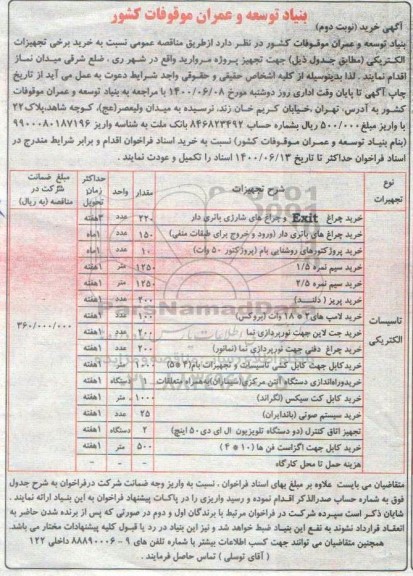 بنیاد توسعه و عمران موقوفات کشور
آگهی خرید (نوبت دوم)
بنیاد توسعه و عمران موقوفات کشور در نظر دارد ازطریق مناقصه عمومی نسبت به خرید برخی تجهیزات
الکتریکی (مطابق جدول ذیل) جهت تجهیز پروژه مروارید واقع در شهر ری ، ضلع شرقی میدان نماز
اقدام نمایند . لذا بدینوسیله از کلیه اشخاص حقیقی و حقوقی واجد شرایط دعوت به عمل می آید از تاریخ
چاپ آگهی تا پایان وقت اداری روز دوشنبه مورخ ۱۴۰۰/۰۶/۰۸ با مراجعه به بنیاد توسعه و عمران موقوفات
کشور به آدرس، تهران ،خیابان کریم خان زند، نرسیده به میدان ولیعصر(عج)، کوچه شاهد،پلاک۲۲
با واریز مبلغ ۵۰۰/۰۰۰ ریال بشماره حساب ۸۴۶۸۲۳۴۹۲ بانک ملت به شناسه واریز ۹۹۰۰۰۸۰۱۸۷۱۹۶
(بنام بنیاد توسعه و عمران موقوفات کشور) نسبت به خرید اسناد فراخوان اقدام و برابر شرایط مندرج در
اسناد فراخوان حداکثر تا تاریخ ۱۴۰۰/۰۶/۱۳ اسناد را تکمیل و عودت نمایند .
نوع تجهیزات شرح تجهیزات مقدار واحد حداکثر زمان تحویل مبلغ ضمانت شرکت در مناقصه (به ریال)
تاسیسات الکتریکی
خرید چراغ Exit و چراغ های شارژی باتری دار ۲۲۰ عدد ۳هفته
خرید چراغ های باتری دار (ورود و خروج برای طبقات منفی) ۱۵۰ عدد ۱ماه
خرید پروژکتورهای روشنایی بام (پروژکتور ۵۰ وات) ۱۰ عدد ۱ماه
خرید سیم نمره ۱/۵ ۱۲۵۰ متر ۱هفته
خرید سیم نمره ۲/۵ ۱۲۵۰ متر ۱هفته
خرید پریز (دلند) ۲۰۰ عدد ۱هفته
خرید لامپ های ۲ * ۱۸ وات (بروکس) ۱۰۰ عدد ۱هفته
خرید جت لاین جهت نورپردازی نما ۲۰۰ عدد ۱هفته
خرید چراغ دفنی جهت نورپردازی نما ۲۰۰ عدد ۱هفته
خریدکابل جهت کابل کشی تاسیسات و تجهیزات بام(۴ *۵) ۱۰۰۰ متر ۱هفته
خریدوراه‌اندازی دستگاه آنتن مرکزی به‌همراه متعلقات ۱ دستگاه ۱هفته
خرید کابل کت سیکس (لگراند) ۱۰۰۰ متر ۱هفته
خرید سیستم صوتی (باندایران) ۲۵ عدد ۱هفته
تجهیز اتاق کنترل (دو دستگاه تلویزیون ال ای دی ۵۰ اینچ) ۲ دستگاه ۱هفته
خرید کابل جهت اگزاست فن ها (۱۰ * ۴) ۵۰۰ متر ۱هفته
هزینه حمل تا محل کارگاه - - -
۳۶۰/۰۰۰/۰۰۰
متقاضیان می بایست علاوه بر مبلغ بهای اسناد فراخوان ، نسبت به واریز وجه ضمانت شرکت درفراخوان به شرح جدول
فوق به شماره حساب صدرالذکر اقدام نموده و رسید واریزی را در پاکات پیشنهاد فراخوان به این بنیاد ارائه نمایند .
شایان ذکر است سپرده شرکت در فراخوان مرتبط با برندگان اول و دوم در صورتی که پس از برنده شدن حاضر به
انعقاد قرارداد نشوند به نفع این بنیاد ضبط خواهد شد و نیز این بنیاد در رد یا قبول کلیه پیشنهادات مختار می باشد.
همچنین متقاضیان می توانند جهت کسب اطلاعات بیشتر با شماره تلفن های ۹ - ۸۸۸۹۰۰۰۶ داخلی ۱۲۲
( آقای توسلی ) تماس حاصل فرمایند .